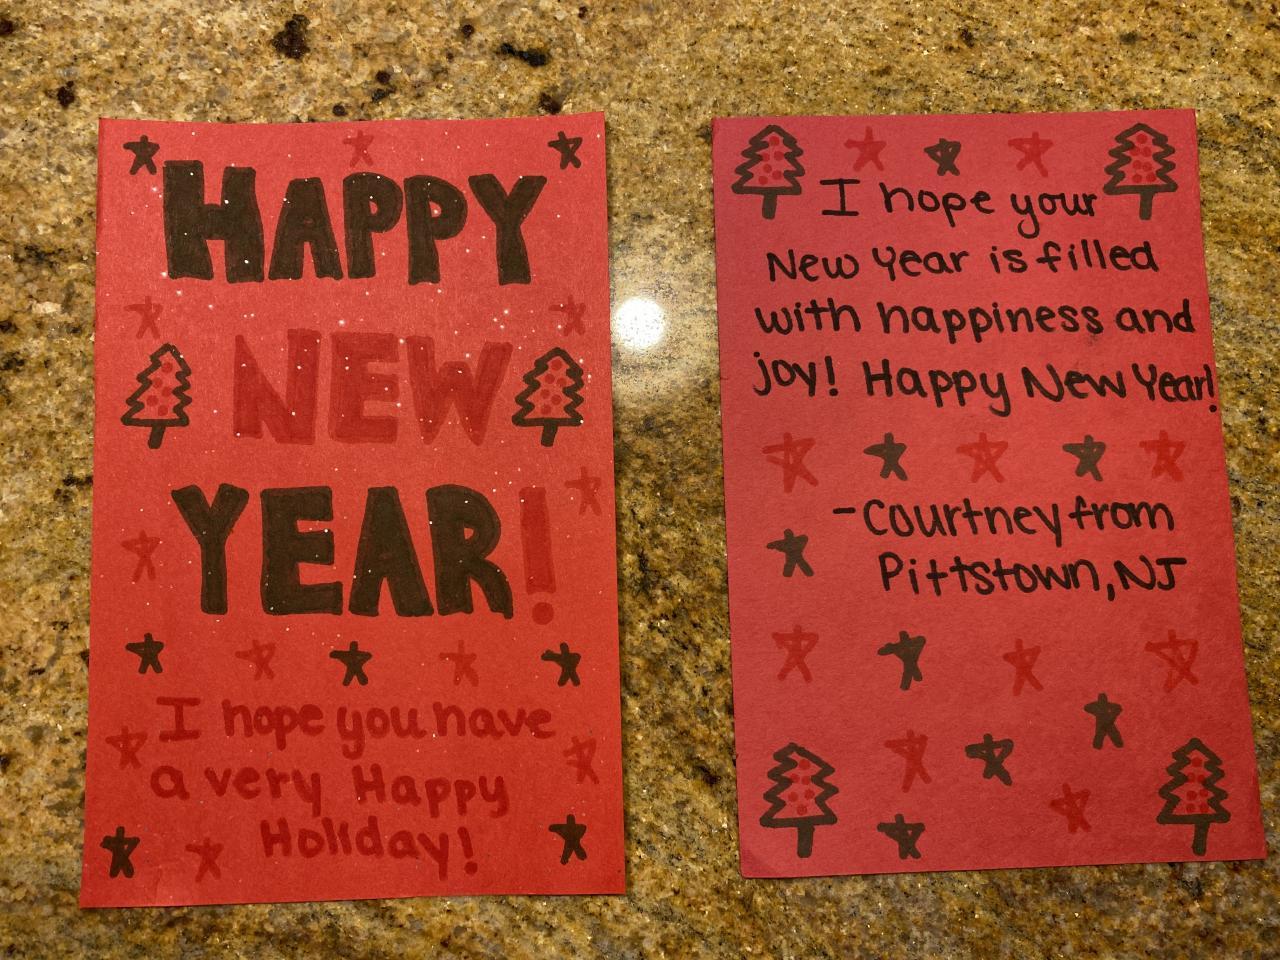 HAPPY
NEW
YEAR!
I hope you have
a very Happy
Holiday!
I hope your
New Year is filled
with happiness and
joy! Happy New Year!
-Courtney from
Pittstown, NJ